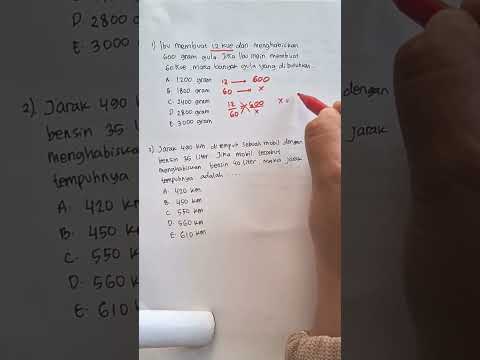 1) Ibu membuat 12 kue dan menghabiskan
600 gram gula. Jika Ibu ingin membuat
60 kue, maka banyak gula yang dibutuhkan
A. 1200 gram
B. 1800 gram
C. 2400 gram
D. 2800 gram
E. 3000 gram
12 → 600
60 → x
12/60 = 600/x
x =
2) Jarak 490 km ditempuh sebuah mobil dengan
bensin 35 liter. Jika mobil tersebut
menghabiskan bensin 40 liter maka jarak
tempuhnya adalah ....
A. 420 km
B. 450 km
C. 550 km
D. 560 km
E. 610 km
D. 2800
E. 3000
2) Jarak 490
bensin 35
menghabiskan
tempuhnya
A. 420 km
B. 450 km
C. 550 km
D. 560 km
E. 610 km
Jarak
dengan
tersebut
jarak